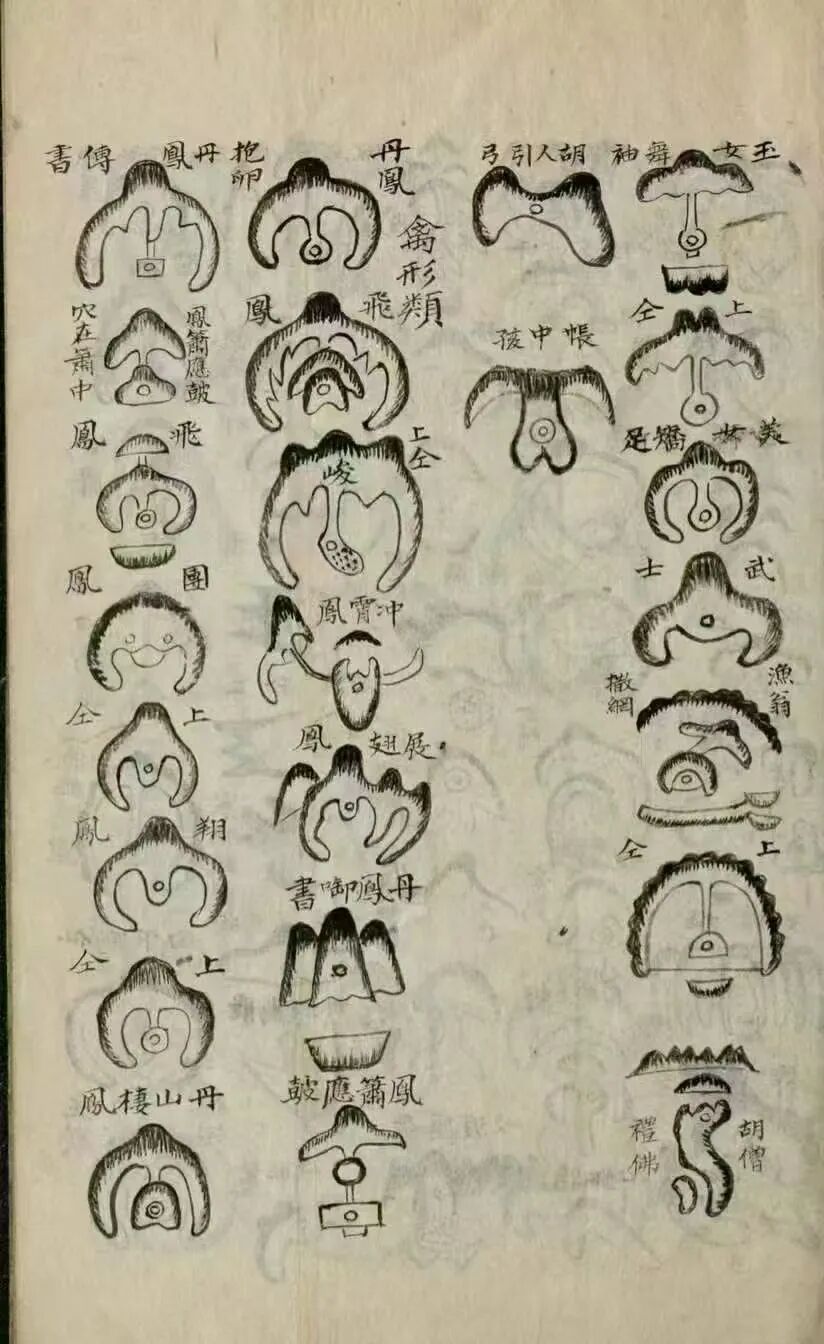 玉女舞袖
上仝
美女嬌足
武士
漁翁撒網
上仝
胡僧禮佛
胡人引弓
帳中孩
禽形類
丹鳳抱卵
飛鳳
上仝
峻
冲霄鳳
展翅鳳
丹鳳啣書
鳳簫應皷
丹鳳傳書
鳳簫應皷
穴在簫中
飛鳳
團鳳
上仝
翔鳳
上仝
丹山棲鳳